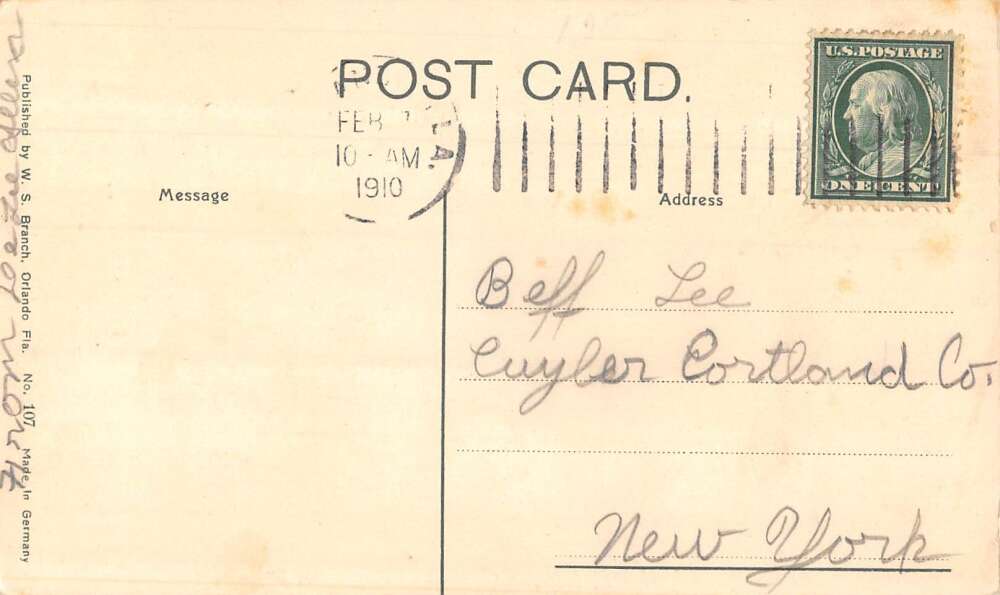 POST CARD.
U.S. POSTAGE
ONE CENT
LA.
FEB
10 - AM
1910
Message
Address
Beff Lee
Cuyler Cortland Co.
New York
Published by W. S. Branch, Orlando Fla. No. 107. Made in Germany
From